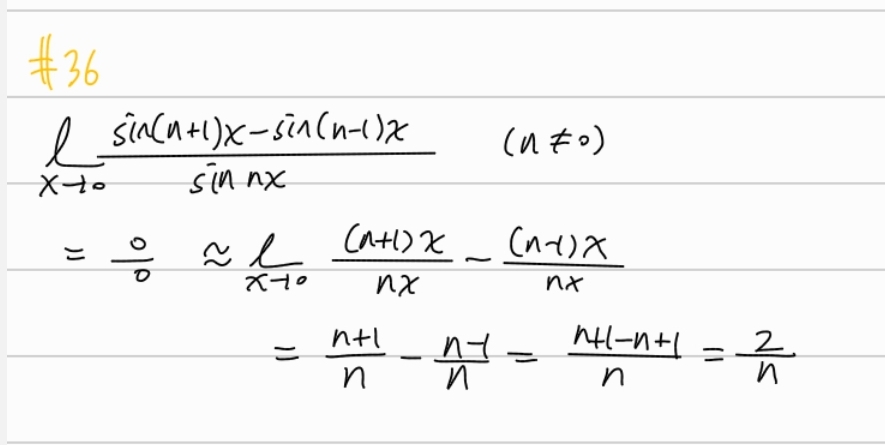 #36
l x→0 sin(n+1)x-sin(n-1)x / sin nx (n≠0)
= 0/0 ≈ l x→0 (n+1)x/nx - (n-1)x/nx
= n+1/n - n-1/n = n+1-n+1/n = 2/n